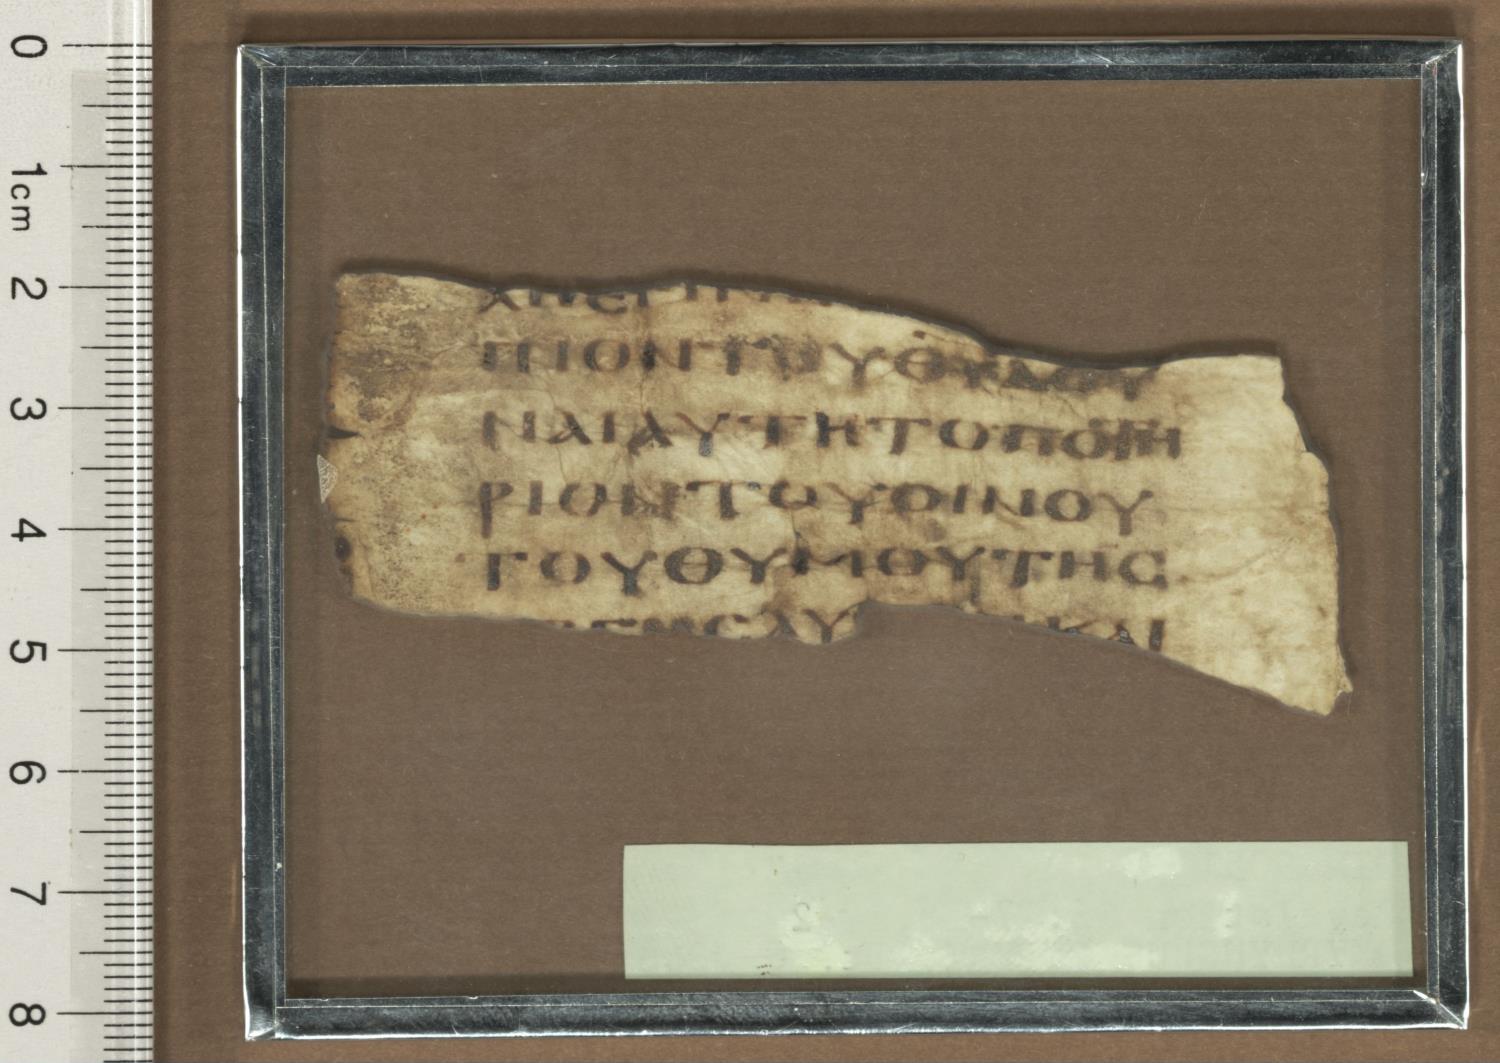 ΠΙΟΝΤΟΥΘΥΔΟΥ
ΝΑΙΑΥΤΗΤΟΠΟΤΗ
ΡΙΟΝΤΟΥΟΙΝΟΥ
ΤΟΥΘΥΜΟΥΤΗϹ
ΟΡΓΗϹΑΥ ΚΑΙ
0
1cm
2
3
4
5
6
7
8